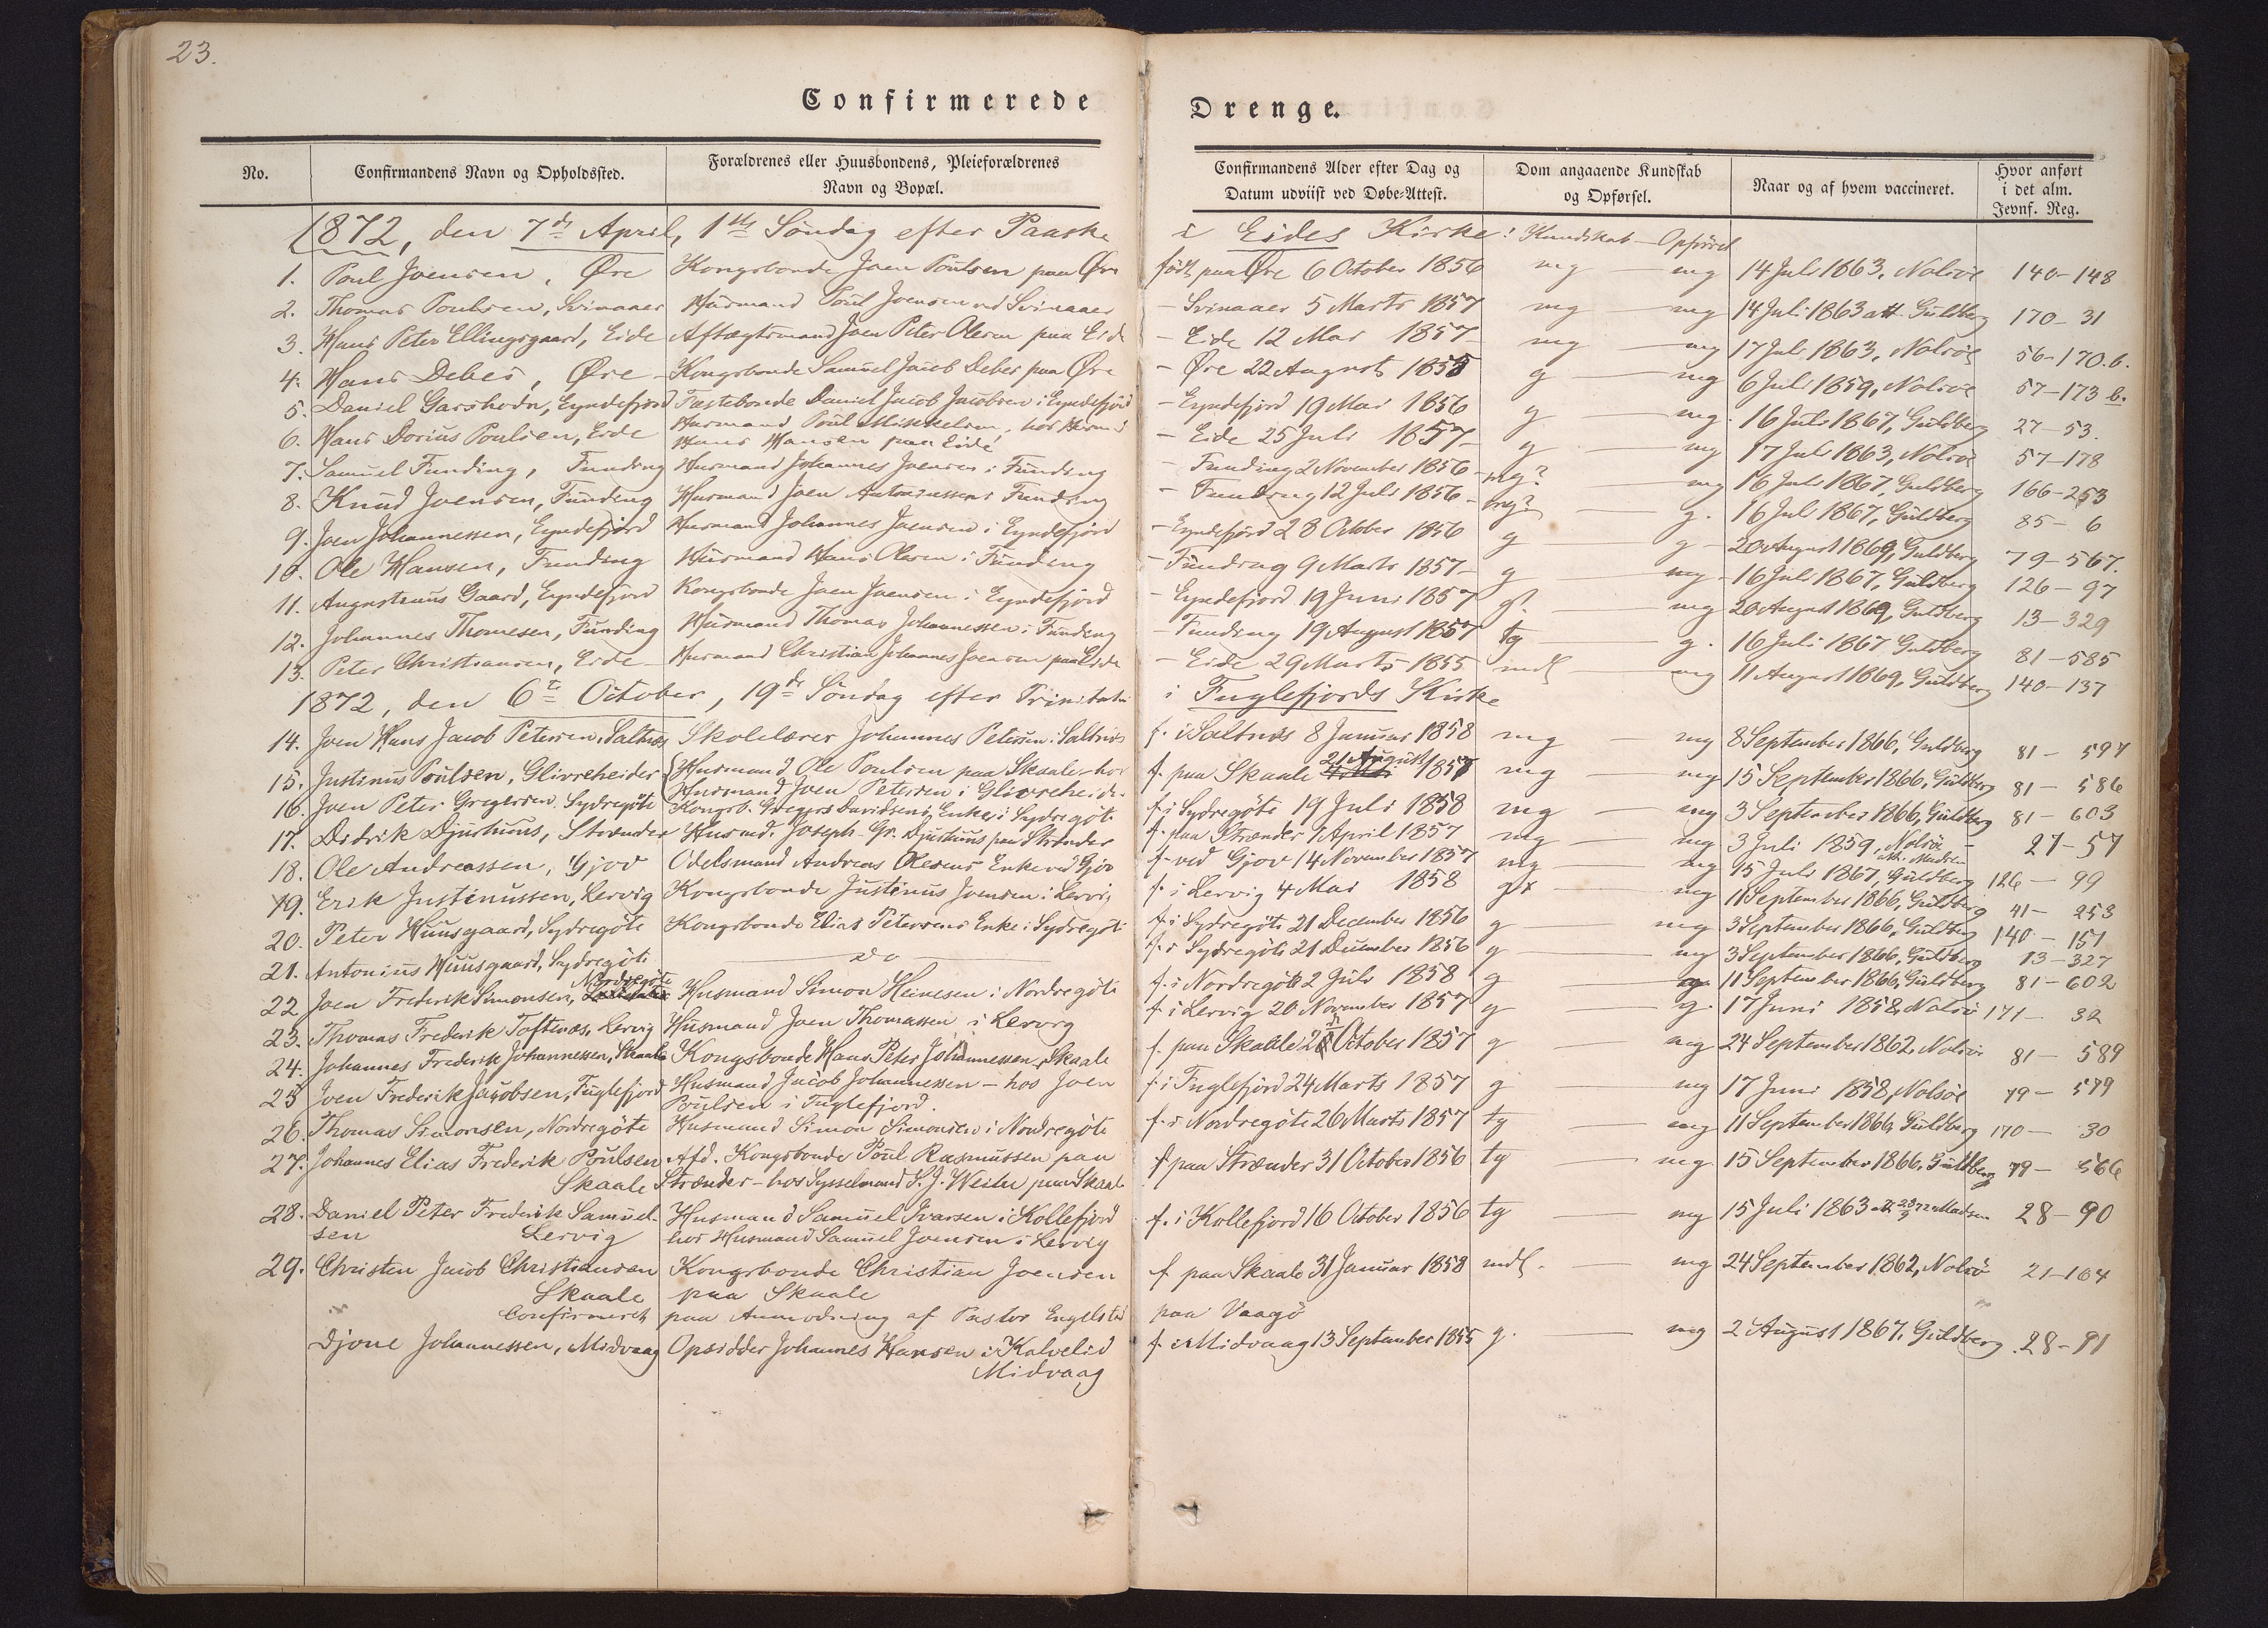 23.
Confirmerede
Drenge.
No.
Confirmandens Navn og Opholdssted.
Forældrenes eller Huusbondens, Pleieforældrenes
Navn og Bopæl.
Confirmandens Alder efter Dag og
Datum udviist ved Døbe-Attest.
Dom angaaende Kundskab
og Opførsel.
Naar og af hvem vaccineret.
Hvor anført
i det alm.
Jevnf. Reg.
1872, den 7de April, 1ste Söndag efter Paaske i Eides Kirke: Kundskab - Opførsel
1. Poul Joensen, Øre Kongsbonde Joen Poulsen paa Øre født paa Øre 6 October 1856 mg — mg 14 Juli 1863, Nolsöe 140-148
2. Thomas Poulsen, Svinaaer Husmand Poul Joensen ved Svinaaer - Svinaaer 5 Marts 1857 mg — mg 14 Juli 1863 att Guldberg 170-31
3. Hans Peter Ellingsgaard, Eide Aftægtsmand Joen Peter Olesen paa Eide - Eide 12 Mai 1857 mg — mg 17 Juli 1863, Nolsöe 56-170.b.
4. Hans Debes, Øre - Kongsbonde Samuel Jacob Debes paa Øre - Øre 22 August 1855 g — mg 6 Juli 1859, Nolsöe 57-173 b.
5. Daniel Garshodn, Eyndefjord Fæstebonde Daniel Jacob Jacobsen i Eyndefjord - Eyndefjord 19 Mai 1856 g — mg. 16 Juli 1867, Guldberg 27-53.
6. Hans Dorius Poulsen, Eide Husmand Poul Mikkelsen, hos Husmd
Hans Hansen paa Eide - Eide 25 Juli 1857 g — mg 17 Juli 1863, Nolsöe 57-178
7. Samuel Funding, Funding Husmand Johannes Joensen i Funding - Funding 2 November 1856 - mg? — mg 16 Juli 1867, Guldberg 166-253
8. Knud Joensen, Funding Husmand Joen Antoniussen i Funding - Funding 12 Juli 1856 - mg? — g. 16 Juli 1867, Guldberg 85-6
9. Joen Johannessen, Eyndefjord Husmand Johannes Joensen i Eyndefjord - Eyndefjord 28 October 1856 g — g - 20 August 1869, Guldberg 79-567.
10. Ole Hansen, Funding Husmand Hans Olesen i Funding - Funding 9 Marts 1857 - g — mg - 16 Juli 1867, Guldberg 126-97
11. Augustinus Gaard, Eyndefjord Kongsbonde Joen Joensen i Eyndefjord - Eyndefjord 19 Juni 1857 g?. — mg 20 August 1869, Guldberg 13-329
12. Johannes Thomesen, Funding Husmand Thomas Johannessen i Funding - Funding 19 August 1857 tg — g. 16 Juli 1867 Guldberg 81-585
13. Peter Christiansen, Eide - Husmand Christian Johannes Joensen paa Eide - Eide 29 Marts 1855 mdl — mg 11 August 1869, Guldberg 140-137
1872, den 6te October, 19de Söndag efter Trinitatis i Fuglefjords Kirke
14. Joen Hans Jacob Petersen, Saltnæs Skolelærer Johannes Petersen i Saltnæs f. i Saltnæs 8 Januar 1858 mg — mg 8 September 1866, Guldberg 81-597
15. Justinus Poulsen, Glivreheider Husmand Ole Poulsen paa Skaale - hos
Husmand Joen Petersen i Glivreheide. f. paa Skaale 21 August 1857 mg — mg 15 September 1866, Guldberg 81-586
16. Joen Peter Gregersen, Sydregöte Kongsb. Gregers Davidsens Enke, i Sydregöte f. i Sydregöte 19 Juli 1858 mg — mg 3 September 1866, Guldberg 81-603
17. Didrik Djurhuus, Strænder Husmd. Joseph Gr. Djurhuus paa Strænder f. paa Strænder 1 April 1857 mg — mg 3 Juli 1859, Nolsöe 27-57
18. Ole Andreassen, Gjov Odelsmand Andreas Olesens Enke ved Gjov f. ved Gjov 14 November 1857 mg — mg 15 Juli 1867, Guldberg att. Madsen 126-99
19. Erik Justinussen, Lervig Kongsbonde Justinus Joensen i Lervig f. i Lervig 4 Mai 1858 gx — mg 11 September 1866, Guldberg 41-253
20. Peter Huusgaard, Sydregöte Kongsbonde Elias Petersens Enke i Sydregöte f. i Sydregöte 21 December 1856 g — mg 3 September 1866, Guldberg 140-151
21. Antonius Huusgaard, Sydregöte — do — f. i Sydregöte 21 December 1856 g — mg 3 September 1866, Guldberg 13-327
22 Joen Frederik Simonsen, Nordregöte Husmand Simon Heinesen i Nordregöte f. i Nordregöte 2 Juli 1858 g — mg 11 September 1866, Guldberg 81-602
23. Thomas Frederik Toftenæs, Lervig Husmand Joen Thomassen i Lervig f. i Lervig 20 November 1857 g — g. 17 Juni 1858, Nolsöe 171-32
24. Johannes Frederik Johannessen, Skaale Kongsbonde Hans Peter Johannessen, Skaale f. paa Skaale October 1857 g — mg 24 September 1862, Nolsöe 81-589
25 Joen Frederik Jacobsen, Fuglefjord Husmand Jacob Johannessen - hos Joen
Poulsen i Fuglefjord. f. i Fuglefjord 24 Marts 1857 g — mg 17 Juni 1858, Nolsöe 79-579
26. Thomas Simonsen, Nordregöte Husmand Simon Simonsen i Nordregöte f. i Nordregöte 26 Marts 1857 tg — mg 11 September 1866, Guldberg 170-30
27. Johannes Elias Frederik Poulsen Afd. Kongsbonde Poul Rasmussen paa
Skaale Strænder - hos Sysselmand S. J. Weihe paa Skaale f. paa Strænder 31 October 1856 tg — mg 15 September 1866, Guldberg 79-566
28. Daniel Peter Frederik Samuel- Husmand Samuel Ivarsen i Kollefjord
sen Lervig hos Husmand Samuel Joensen i Lervig f. i Kollefjord 16 October 1856 tg — mg 15 Juli 1863 Madsen 28-90
29. Christen Jacob Christiansen Kongsbonde Christian Joensen
Skaale paa Skaale f. paa Skaale 31 Januar 1858 mdl. — mg 24 September 1862, Nolsö 21-164
Confirmeret paa Anmodning af Pastor Engelsted paa Vaagö
Djone Johannessen, Midvaag Opsidder Johannes Hansen i Kalvelid
Midvaag f. i Midvaag 13 September 1855 g. — mg 2 August 1867, Guldberg 28-91